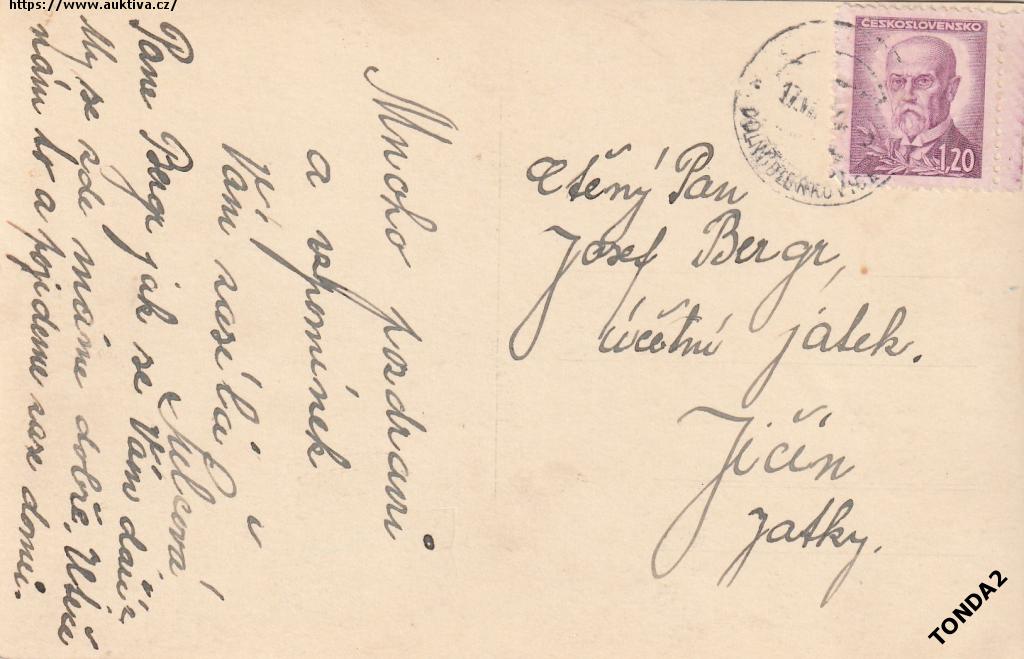 https://www.auktiva.cz/
Mnoho pozdravů
a vzpomínek
Vám zasílá i
Šulcová
Pane Bergr jak se Vám daří
My se zde máme dobře. Uteče
nám to a pojedeme zase domů.
ČESKOSLOVENSKO
1,20
17.VII
Ctěný Pan
Josef Bergr,
účetní jatek.
Jičín
Jatky.
TONDA2